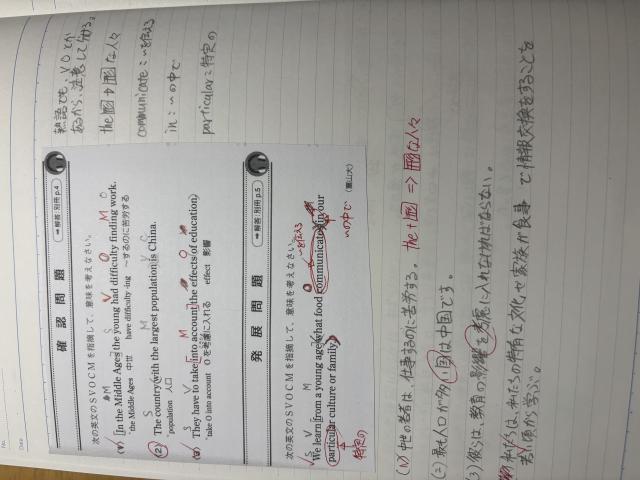 熟語でも、VOとか
あるから、注意して分ける。
the 形 → 形 な人々
communicate = ～を伝える
in = ～の中で
particular = 特定の
確認問題
➡解答:別冊p.4
次の英文のSVOCMを指摘して、意味を考えなさい。
M S V O M O
(1) In the Middle Ages the young had difficulty finding work.
*the Middle Ages 中世 have difficulty -ing ～するのに苦労する
S M V C
(2) The country with the largest population is China.
*population 人口
S V M O
(3) They have to take into account the effects of education.
*take O into account Oを考慮に入れる effect 影響
発展問題
➡解答:別冊p.5
次の英文のSVOCMを指摘して、意味を考えなさい。
S V M O ～を伝える
We learn from a young age what food communicates in our
particular culture or family.
(富山大)
特定の
～の中で
(1) 中世の若者は、仕事するのに苦労する。 the + 形 => 形 な人々
(2) 最も人口が多い国は中国です。
(3) 彼らは、教育の影響を考慮に入れなければならない。
私たちは、私たちの特有な文化や家族が食事で情報交換をすることを
若い頃から学ぶ。